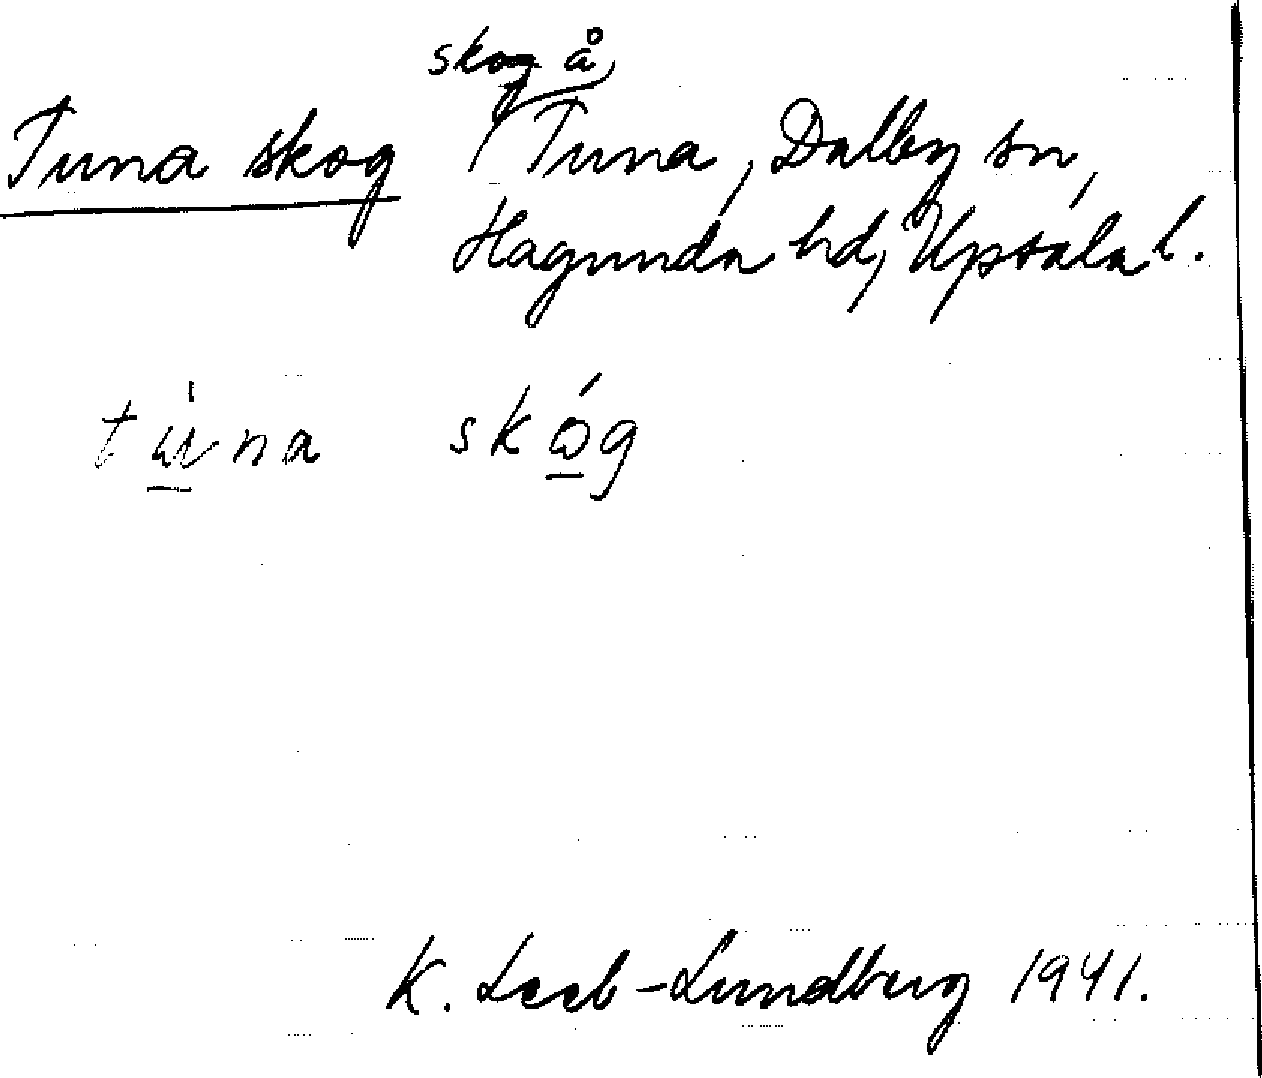 skog å
Tuna skog Tuna, Dalby sn,
Hagunda hd, Upsala l.
tu̲'na skó̲g
K. Leeb-Lundberg 1941.